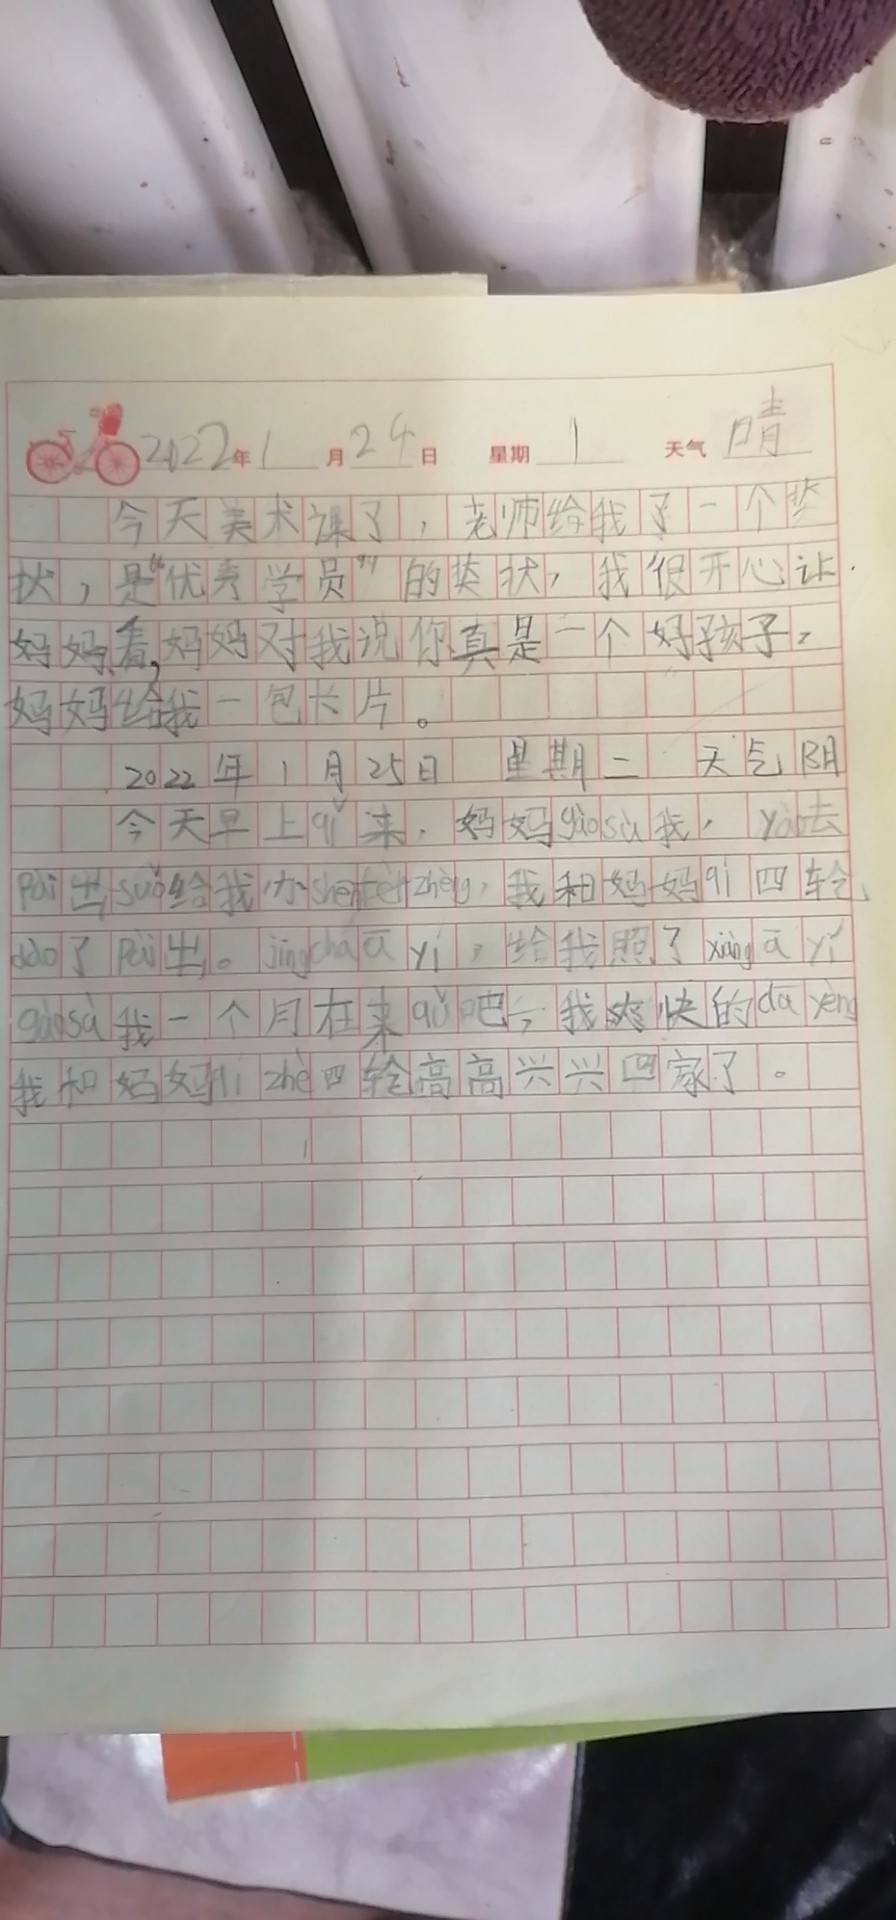 2022年1月24日 星期1 天气晴
今天美术课了,老师给我了一个奖
状,是“优秀学员”的奖状,我很开心让
妈妈看,妈妈对我说你真是一个好孩子,
妈妈给我一包卡片。
2022年1月25日 星期二 天气阴
今天早上qǐ来,妈妈gàosù我,yào去
pài出suǒ给我办shēnfènzhèng,我和妈妈qí四轮
dào了pài出。jǐngchá ā yí,给我照了xiàng ā yí
gàosù我一个月在来qǔ吧,我爽快的dā yèng
我和妈妈qí zhè四轮高高兴兴回家了。